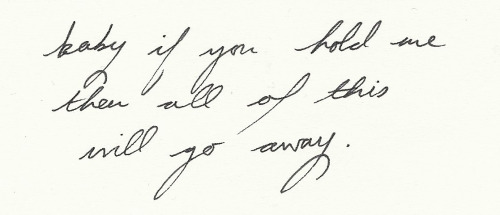 baby if you hold me
then all of this
will go away.